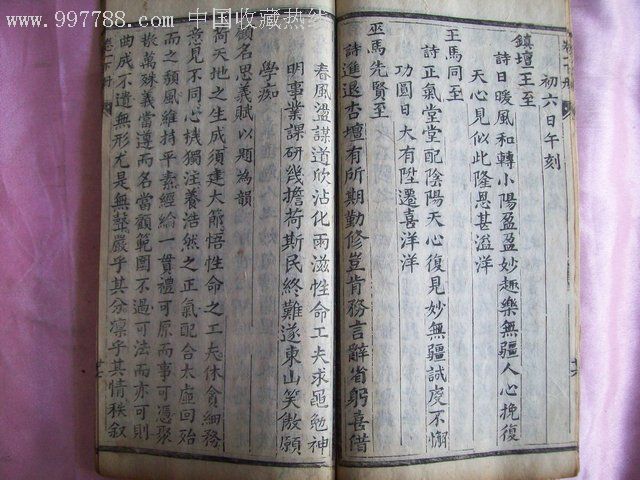 www.997788.com 中国收藏热线
初六日午刻
鎮壇二王至
詩日暖風和轉小陽盈盈妙趣樂無疆人心挽復
天心見似此隆恩甚溢洋
王馬同至
詩正氣堂堂配陰陽天心復見妙無疆誠虔不懈
功圓日大有陞遷喜洋洋
巫馬先賢至
詩進退杏壇有所期勤修豈肯務言辭省躬喜借
春風盪謀道欣沾化雨滋性命工夫求黽勉神
明事業課研幾擔荷斯民終難遂東山笑傲願
學痴
顧名思義賦以題為韻
荷天地之生成須建大節悟性命之工夫休貪細務
意見不同心機獨注養浩然之正氣配合太虛回殆
而之頹風維持乎素經綸一貫禮可原而事可憑聚
散萬殊義當遵而名當顧範圍不過可法而亦可則
曲成不遺無形尤是無聲嚴乎其分凜乎其情秩叙